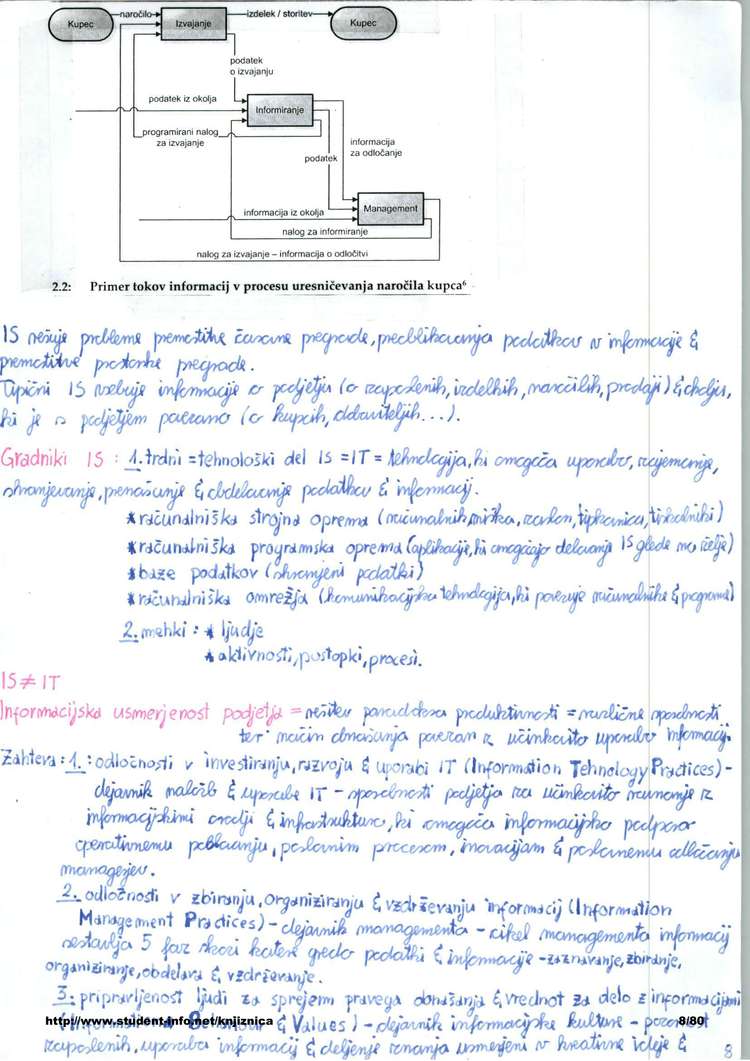 Kupec
naročilo
Izvajanje
izdelek / storitev
Kupec
podatek
o izvajanju
podatek iz okolja
Informiranje
programirani nalog
za izvajanje
informacija
za odločanje
podatek
informacija iz okolja
Management
nalog za informiranje
nalog za izvajanje – informacija o odločitvi
2.2: Primer tokov informacij v procesu uresničevanja naročila kupca⁶
IS rešuje probleme premostitve časovne pregrade, preoblikovanja podatkov v informacije &
premostitve prostorske pregrade.
Tipični IS vsebuje informacije o podjetju (o zaposlenih, izdelkih, naročilih, prodaji) & okolju,
ki je s podjetjem povezano (o kupcih, dobaviteljih...).
Gradniki IS : 1. trdni = tehnološki del IS = IT = tehnologija, ki omogoča uporabo, zajemanje,
shranjevanje, prenašanje & obdelovanje podatkov & informacij.
* računalniška strojna oprema (računalnik, miška, zaslon, tipkovnica, tiskalniki)
* računalniška programska oprema (aplikacije, ki omogočajo delovanje IS glede na želje)
* baze podatkov (shranjeni podatki)
* računalniška omrežja (komunikacijska tehnologija, ki povezuje računalnike & programe)
2. mehki : * ljudje
* aktivnosti, postopki, procesi.
IS ≠ IT
Informacijska usmerjenost podjetja = rešitev paradoksa produktivnosti = različne sposobnosti
ter način obnašanja povezan z učinkovito uporabo informacij.
Zahteva : 1. : odločnosti v investiranju, razvoju & uporabi IT (Information Tehnology Practices) -
dejavnik naložb & uporabe IT - sposobnosti podjetja za učinkovito ravnanje z
informacijskimi orodji & infrastrukturo, ki omogoča informacijsko podporo
operativnemu poslovanju, poslovnim procesom, inovacijam & poslovnemu odločanju
managerjev.
2. odločnosti v zbiranju, organiziranju & vzdrževanju informacij (Information
Management Practices) - dejavnik managementa - cikel managementa informacij
sestavlja 5 faz skozi katere gredo podatki & informacije - zaznavanje, zbiranje,
organiziranje, obdelava & vzdrževanje.
3. pripravljenost ljudi za sprejem pravega obnašanja & vrednot za delo z informacijami
(Information Behaviour & Values) - dejavnik informacijske kulture - pozornost
http://www.student-info.net/knjiznica 8/80
zaposlenih, uporaba informacij & deljenje znanja usmerjeni v kreativne ideje &
8